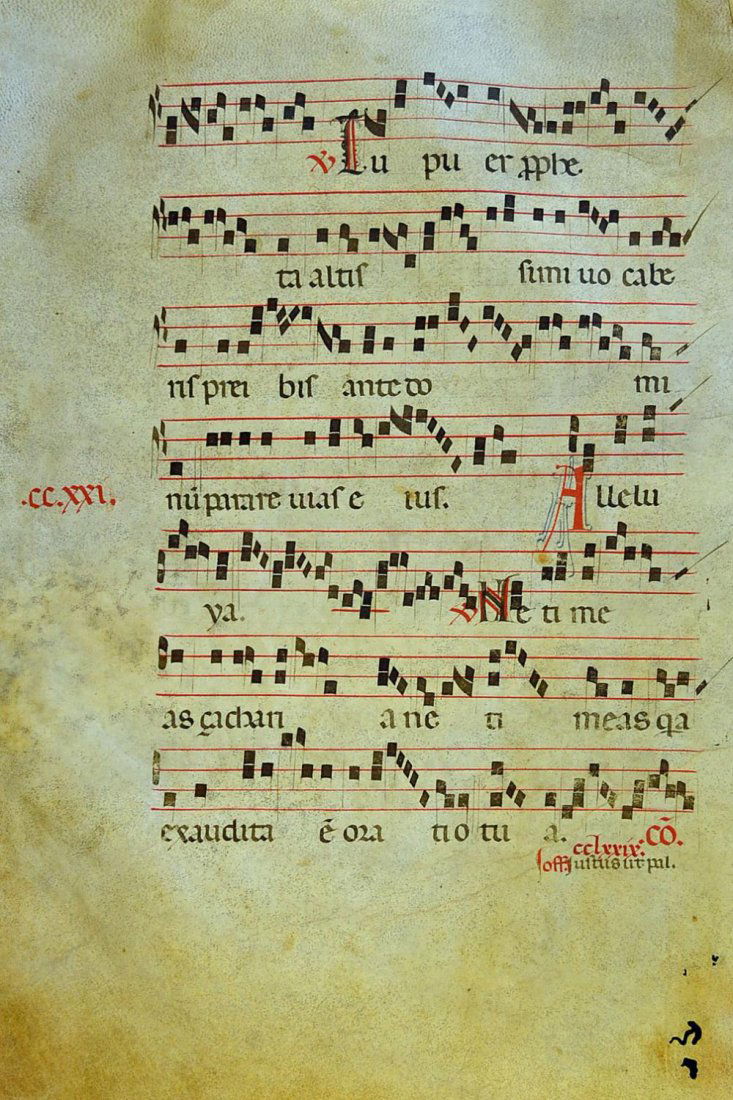 ℣ Tu pu er ꝓphe
ta altis simi uo cabe
ris prei bis ante do mi
nū parare uias e ius. Allelu
.CC.XXI.
ya. ℣ Ne time
as çachari a ne ti meas qa
exaudita ē ora tio tu a. CŌ.
cclxxix.
off. iustus ut pal.